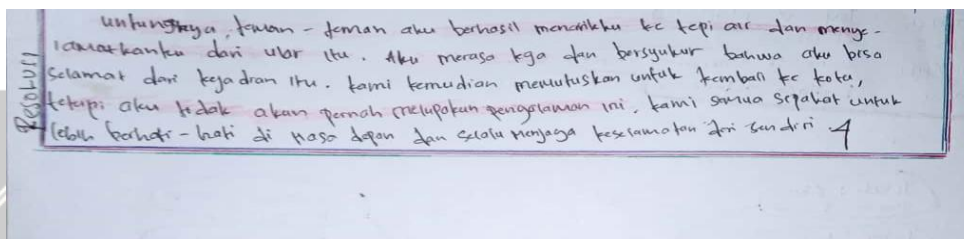 untungnya, teman - teman aku berhasil menarikku ke tepi air dan menye-
lamatkanku dari ular itu. Aku merasa lega dan bersyukur bahwa aku bisa
selamat dari kejadian itu. kami kemudian memutuskan untuk kembali ke kota,
tetapi aku tidak akan pernah melupakan pengalaman ini. kami semua sepakat untuk
lebih berhati - hati di masa depan dan selalu menjaga keselamatan diri sendiri 4
Resolusi